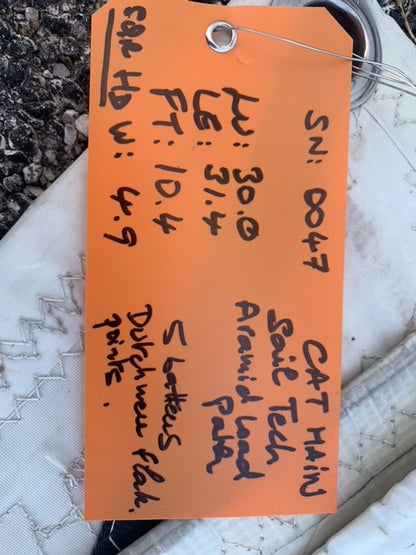 SN: 0047
CAT MAIN
Sail Tech
Aramid Load
Path
LU: 30.0
LE: 31.4
FT: 10.4
SQR HD W: 4.9
5 battens
Dutchmen flak.
points.